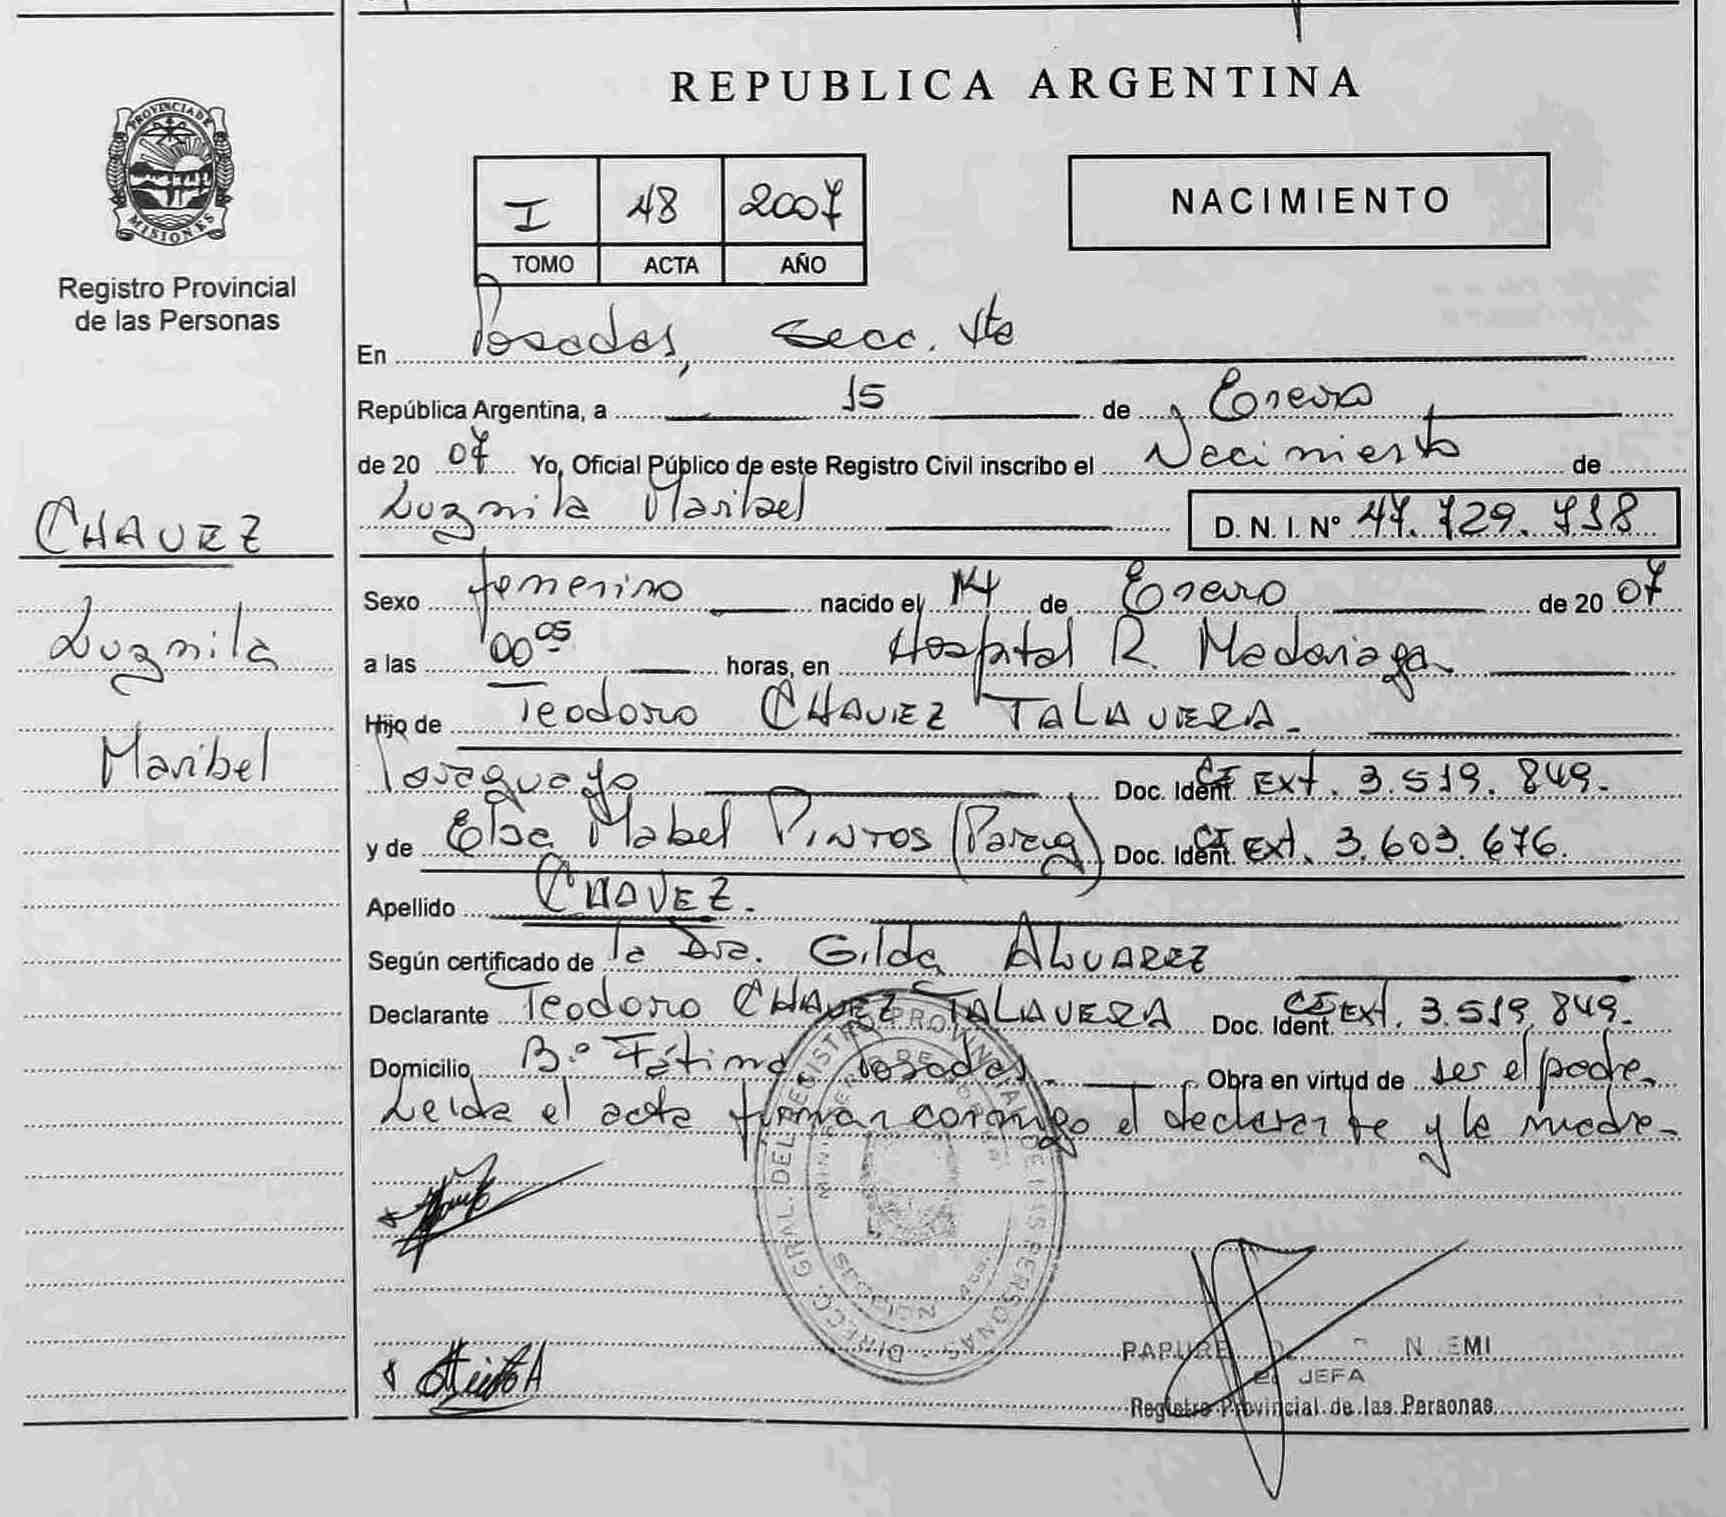 REPUBLICA ARGENTINA
PROVINCIA DE MISIONES
Registro Provincial
de las Personas
I 48 2007
TOMO ACTA AÑO
NACIMIENTO
En Posadas, Secc. Vta
República Argentina, a 15 de Enero
de 2007 Yo, Oficial Público de este Registro Civil inscribo el Nacimiento de
Luzmila Maribel D. N. I. Nº 47.729.718
CHAVEZ
Luzmila
Maribel
Sexo femenino nacido el 14 de Enero de 2007
a las 00 05 horas, en Hospital R. Madariaga
Hijo de Teodoro CHAVEZ TALAVERA.
Paraguayo Doc. Ident. CI Ext. 3.519.849.
y de Elsa Mabel PINTOS (Parag) Doc. Ident. CI Ext. 3.603.676.
Apellido CHAVEZ.
Según certificado de la Dra. Gilda ALVAREZ
Declarante Teodoro CHAVEZ TALAVERA Doc. Ident. CI Ext. 3.519.849.
Domicilio Bº Fátima Posadas. Obra en virtud de ser el padre.
Leida el acta firman conmigo el declarante y la madre.
DIRECC. GRAL. DEL REGISTRO PROVINCIAL DE LAS PERSONAS
JEFA
Registro Provincial de las Personas